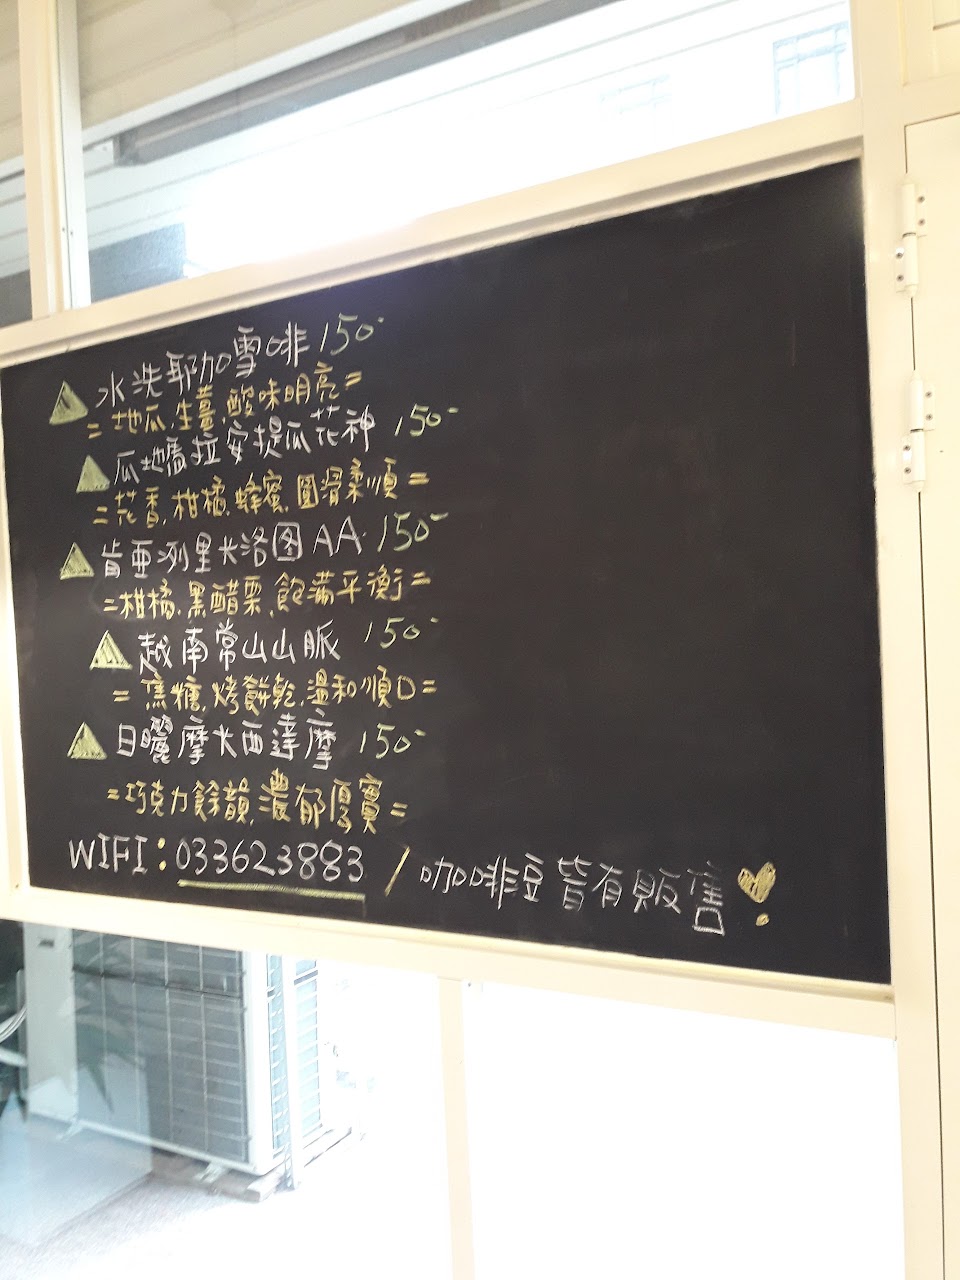 水洗耶加雪啡 150-
=地瓜.生薑.酸味明亮=
瓜地馬拉安提瓜花神 150-
=花香.柑橘.蜂蜜.圓滑柔順=
肯亞冽里大洛图AA 150-
=柑橘.黑醋栗.飽滿平衡=
越南常山山脈 150-
=焦糖.烤餅乾.溫和順口=
日曬摩卡西達摩 150-
=巧克力餘韻.濃郁厚實=
WIFI:033623883 / 咖啡豆皆有販售